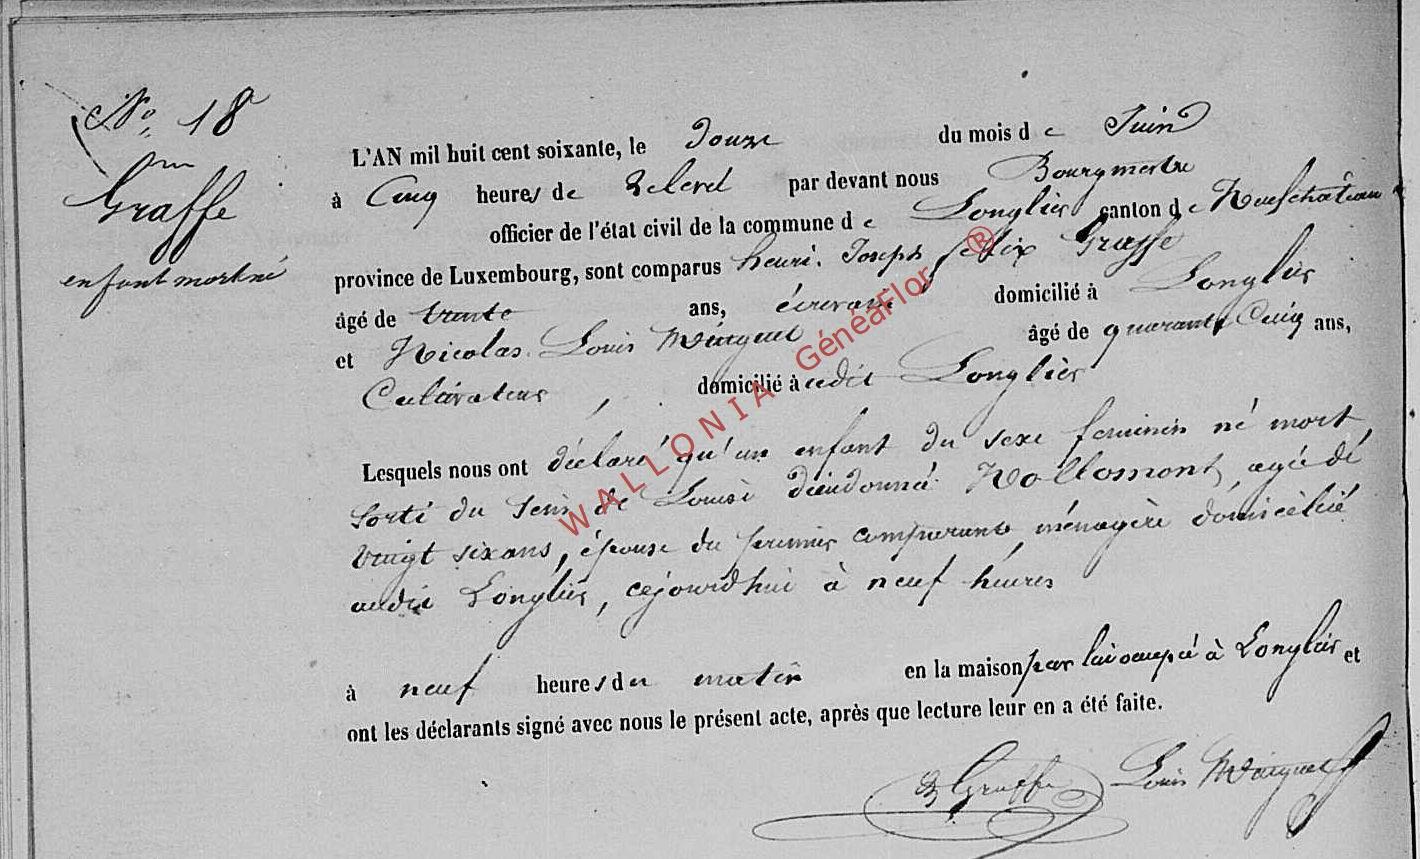 No. 18
Graffe
enfant mort né
L'AN mil huit cent soixante, le douze du mois de Juin
à Cinq heures de relevé par devant nous Bourgmestre
officier de l'état civil de la commune de Longlier canton de Neufchâteau
province de Luxembourg, sont comparus henri. Joseph felix Graffe
âgé de trente ans, écrivain domicilié à Longlier
et Nicolas Louis Minguet âgé de quarante Cinq ans,
Cultivateur, domicilié à cedit Longlier
Lesquels nous ont déclaré qu'un enfant du sexe feminin né mort,
sorti du sein de Louise dieudonné Hollomont, agée de
vingt six ans, épouse du premier comparant, ménagère domiciliée
audit Longlier, cejourdhui à neuf heures
à neuf heures du matin en la maison par lui occupée à Longlier et
ont les déclarants signé avec nous le présent acte, après que lecture leur en a été faite.
Graffe Louis Minguet
WALLONIA GénéaFlor ®